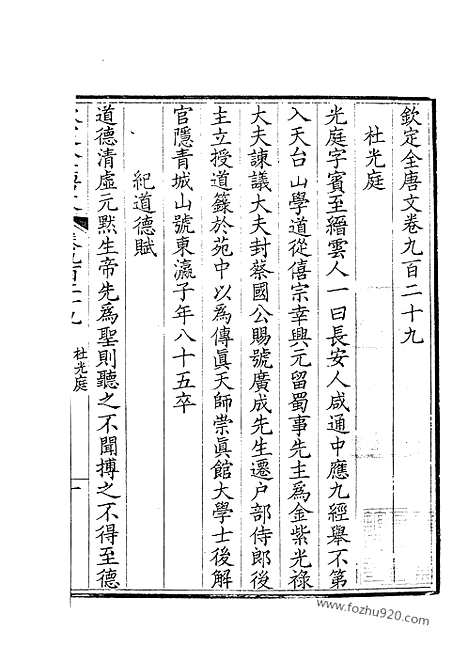 欽定全唐文卷九百二十九
杜光庭
光庭字賓至縉雲人一曰長安人咸通中應九經舉不第
入天台山學道從僖宗幸興元留蜀事先主為金紫光祿
大夫諫議大夫封蔡國公賜號廣成先生遷户部侍郎後
主立授道籙於苑中以為傳眞天師崇眞館大學士後解
官隱青城山號東瀛子年八十五卒
紀道德賦
道德清虛元黙生帝先為聖則聽之不聞搏之不得至德
杜光庭
www.fozhu920.com